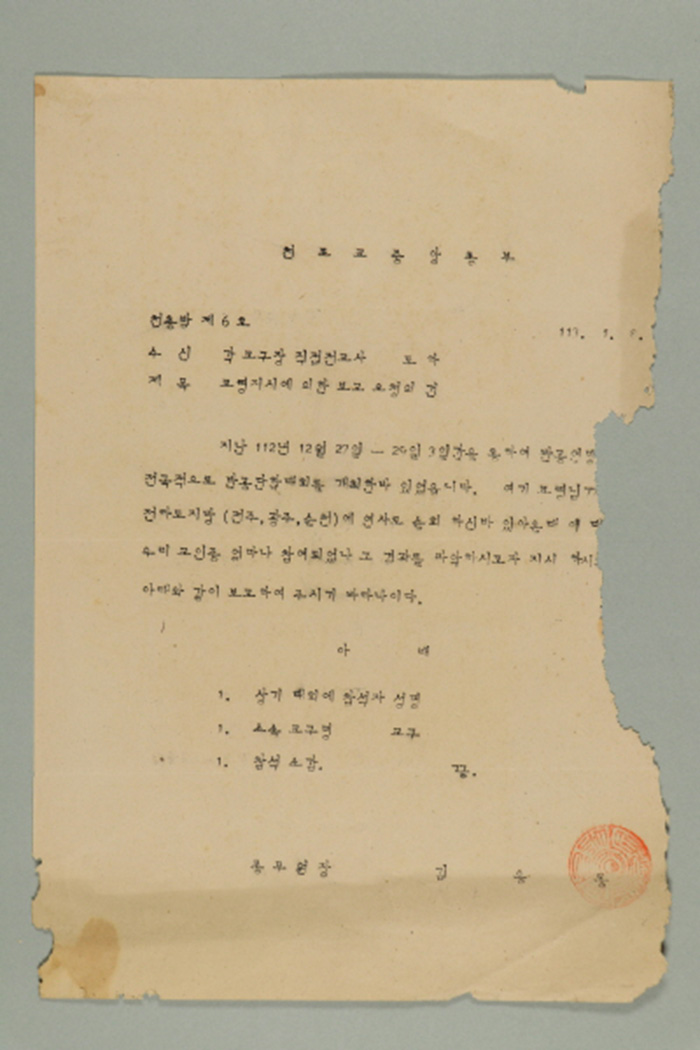 천 도 교 중 앙 총 부
천총발 제 6 호
117. 1. 8.
수 신 각 교구장 직접전교사 도 하
제 목 교령지시에 의한 보고 요청의 건
지난 112년 12월 27일 — 29일 3일간을 통하여 반공연맹
전국적으로 반공단합대회를 개최한바 있었습니다. 여기 교령님
전라도지방 (전주, 광주, 순천) 에 연사로 순회 하신바 있아온데 이
우리 교인중 얼마나 참여되었나 그 결과를 파악하시고자 지시
아래와 같이 보고하여 주시기 바라나이다.
아 래
1. 상기 대회에 참석자 성명
1. 소속 교구명 교구
1. 참석 소감. 끝.
종 무 원 장 김